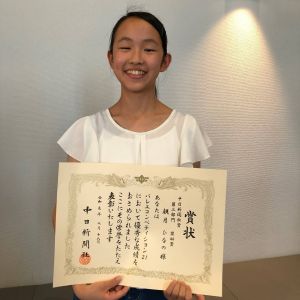 賞状
中日新聞社賞
第三部門 奨励賞
望月 ひなの 様
あなたは
バレエコンペティション21
において優秀な成績を
おさめられました
ここにその栄誉をたたえ
表彰いたします
中日新聞社